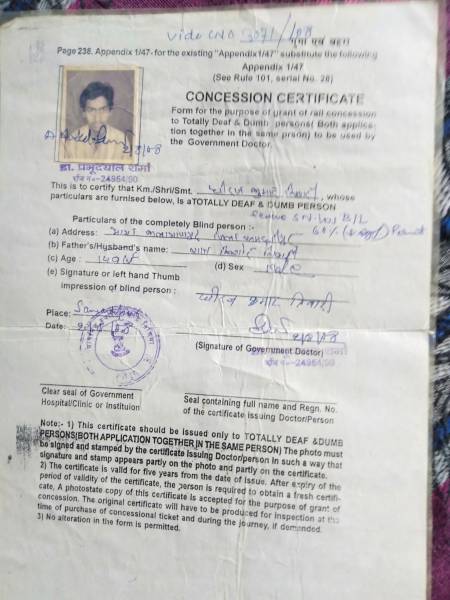 Vide CNO 3071/08
गूंगा एवं बहरा
Page 238. Appendix 1/47- for the existing "Appendix1/47" substitute the following
Appendix 1/47
(See Rule 101, serial No. 28)
CONCESSION CERTIFICATE
Form for the purpose of grant of rail concession
to Totally Deaf & Dumb persons( Both applica-
tion together in the same prson) to be used by
the Government Doctor.
डा. प्रभूदयाल शर्मा
This is to certify that Km./Shri/Smt. कुमार तिवारी, whose
particulars are furnised below, is aTOTALLY DEAF & DUMB PERSON
Particulars of the completely Blind person :-
(a) Address:
(b) Father's/Husband's name:
(c) Age:
(d) Sex
(e) Signature or left hand Thumb
impression of blind person: कुमार तिवारी
Place:
Date:
(Signature of Government Doctor)
Clear seal of Government
Hospital/Clinic or Instituion
Seal containing full name and Regn. No.
of the certificate issuing Doctor/Person
Note:- 1) This certificate should be issued only to TOTALLY DEAF &DUMB
PERSONS(BOTH APPLICATION TOGETHER IN THE SAME PERSON) The photo must
be signed and stamped by the certificate issuing Doctor/person in such a way that
signature and stamp appears partly on the photo and partly on the certificate.
2) The certificate is valid for five years from the date of issue. After expiry of the
period of validity of the certificate, the person is required to obtain a fresh certifi-
cate, A photostate copy of this certificate is accepted for the purpose of grant of
concession. The original certificate will have to be produced for inspection at the
time of purchase of concessional ticket and during the journey, if demanded.
3) No alteration in the form is permitted.